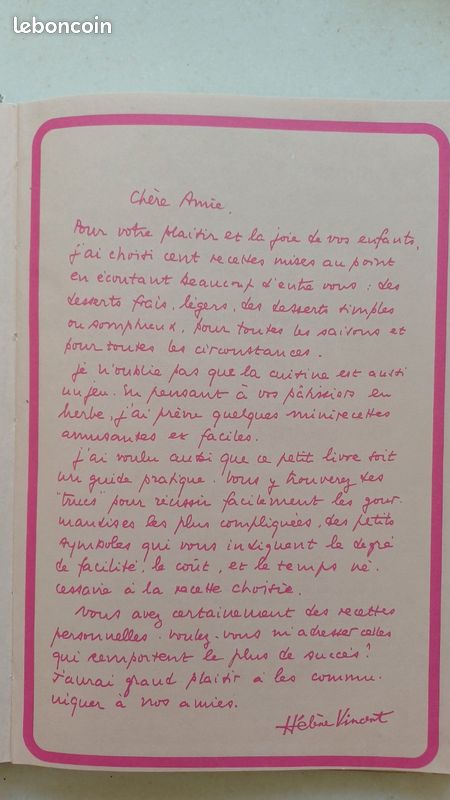 leboncoin
Chère Amie,
Pour votre plaisir et la joie de vos enfants,
j'ai choisi cent recettes mises au point
en écoutant beaucoup d'entre vous : des
desserts frais, légers, des desserts simples
ou somptueux, pour toutes les saisons et
pour toutes les circonstances.
Je n'oublie pas que la cuisine est aussi
un jeu. En pensant à vos pâtissiers en
herbe, j'ai prévu quelques minirecettes
amusantes et faciles.
J'ai voulu aussi que ce petit livre soit
un guide pratique. Vous y trouverez des
"trucs" pour réussir facilement les gour-
mandises les plus compliquées, des petits
symboles qui vous indiquent le degré
de facilité, le coût, et le temps né-
cessaire à la recette choisie.
Vous avez certainement des recettes
personnelles. Voulez-vous m'adresser celles
qui remportent le plus de succès ?
J'aurai grand plaisir à les commu-
niquer à nos amies.
Hélène Vincent